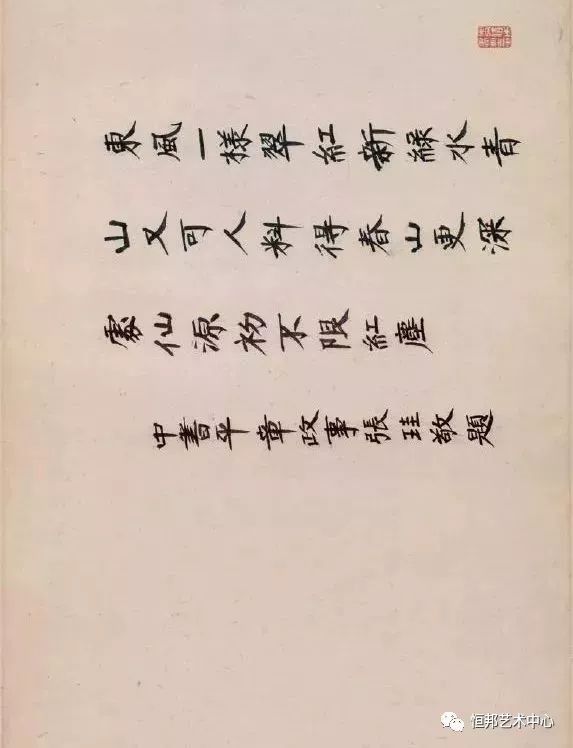 東風一樣翠紅新綠水青
山又可人料得春山更深
處仙源初不限紅塵
中書平章政事張珪敬題
恒邦艺术中心